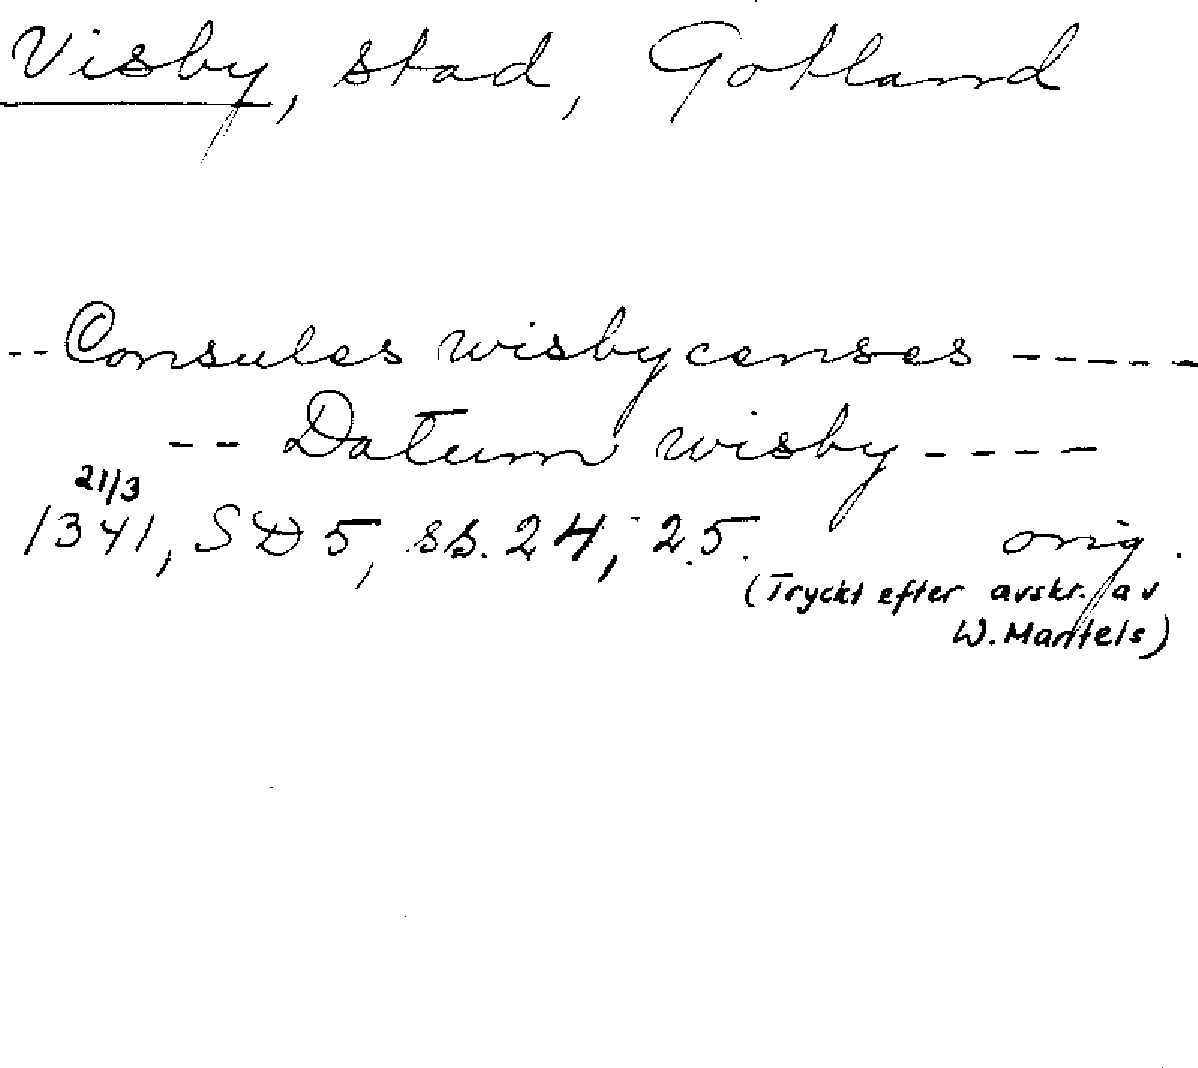 Visby, stad, Gotland
-- Consules wisbycenses -----
-- Datum wisby ----
21/3
1341, SD 5, ss. 24, 25. orig.
(Tryckt efter avskr. av
W. Mantels)